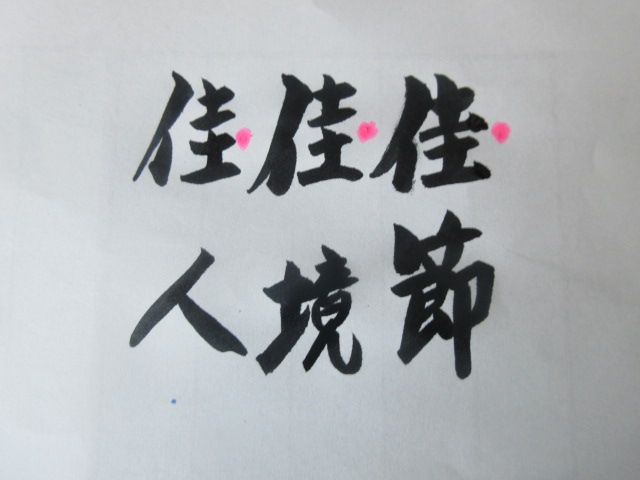 佳節
佳境
佳人